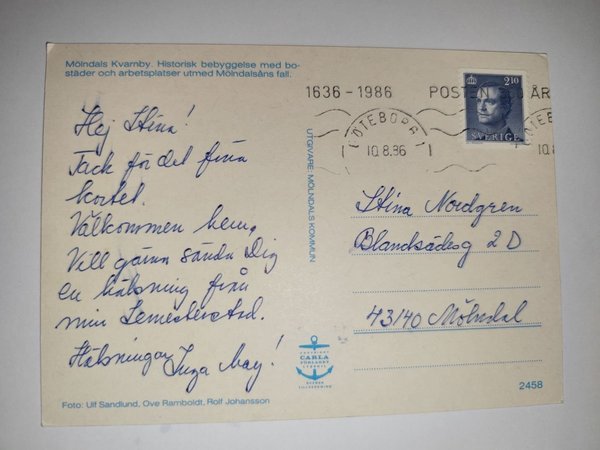 Mölndals Kvarnby. Historisk bebyggelse med bo-
städer och arbetsplatser utmed Mölndalsåns fall.
Hej Stina!
Tack för det fina
kortet.
Välkommen hem,
Vill gärna sända Dig
en hälsning från
min Semesterstad.
Hälsningar Inga May!
Foto: Ulf Sandlund, Ove Ramboldt, Rolf Johansson
UTGIVARE MÖLNDALS KOMMUN
COPYRIGHT
CARLA
FÖRLAGET
LYSEKIL
SVENSK
TILLVERKNING
1636-1986 POSTEN ÅR
GÖTEBORG 1
10.8.86
TEBO
10.8
2.10
SVERIGE
Stina Nordgren
Blandsädesg 2 D
43140 Mölndal
2458